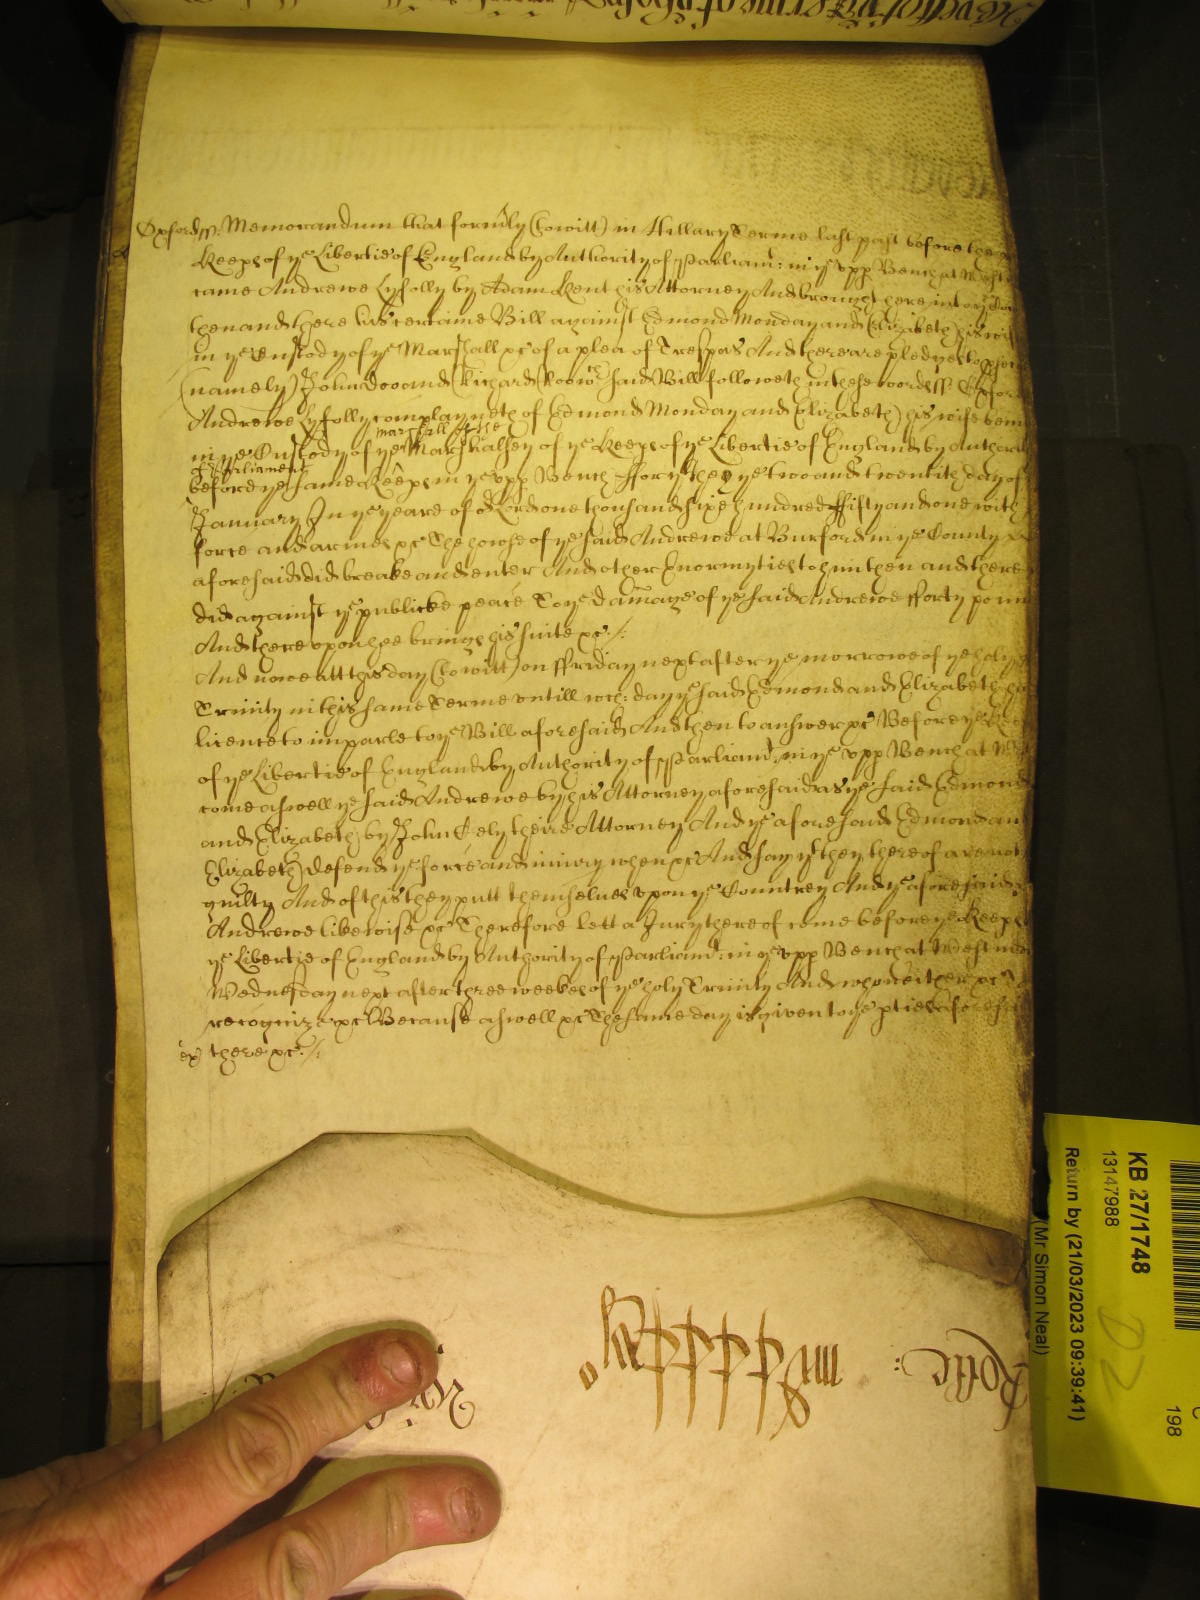 Oxford ss: Memorandum that form̃ly (towitt) in Hillary Terme last past before the
Keeps of ye Libertie of England by Authority of Parliamt: in ye upp Bench at Westm
came Andrewe Lyfolly by Adam Kent his Attorney And brought here into ye
then and there his certaine Bill against Edmond Monday and Elizabeth his wife
in ye Custody of ye Marshall &c of a plea of Trespas And there are pledges
(namely) John Doo and Richard Roo wch said Bill followeth in these words ss
Andrewe Lyfolly complayneth of Edmond Monday and Elizabeth his wife bein
marshall of the
in ye Custody of ye Marshalsey of ye Keeps of ye Libertie of England by Authorit
of Parliament
before ye same Keeps in ye upp Bench ffor yt they ye two and twentith day of
January In ye yeare of or Lord one thousand sixe hundred ffifty and one with
force and armes &c The howse of ye said Andrewe at Burford in ye County
aforesaid did breake and enter And other Enormyties to him then and there
did against ye publicke peace To ye damage of ye said Andrewe fforty poun
And thereupon hee brings his suite &c ./:
And nowe att this day (towitt) on ffriday next after ye morrowe of ye holy
Trinity in this same Terme untill wch: day ye said Edmond and Elizabeth
licence to imparle to ye Bill aforesaid And then to answer &c Before ye
of ye Libertie of England by Authority of Parliamt. in ye upp Bench at
come aswell ye said Andrewe by his Attorney aforesaid as ye said Edmond
and Elizabeth by John Ely theire Attorney And ye aforesaid Edmond an
Elizabeth defend ye force and iniury when &c And say yt they thereof are not
guilty And of this they putt themselves upon ye Countrey And ye aforesaid
Andrewe likewise &c Therefore lett a Jury thereof come before ye Keeps
ye Libertie of England by Authority of Parliamt: in ye upp Bench at Westm
Wednesday next after three weekes of ye holy Trinity And who neither &c
recognize &c Because aswell &c The same day is given to ye pties aforesaid
ex̃ there &c ./:
Rotlo :
KB 27/1748
13147988
Return by (21/03/2023 09:39:41)
(Mr Simon Neal)
D2
198